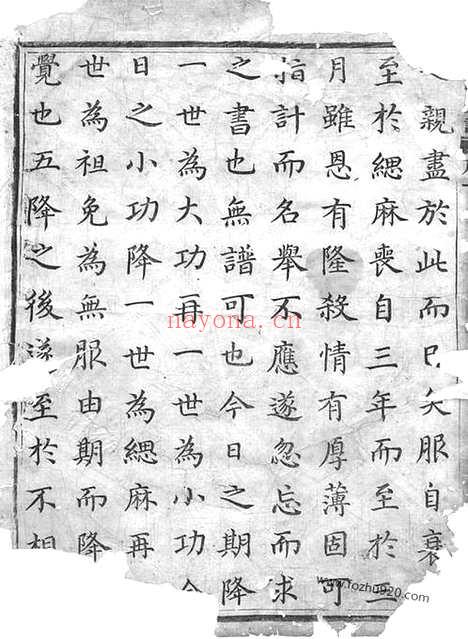 親盡於此而已矣服自衰
至於緦麻喪自三年而至於三
月雖恩有隆殺情有厚薄固可
指計而名舉不應遂忽忘而求
之書也無譜可也今日之期降
一世為大功再一世為小功今
日之小功降一世為緦麻再
世為祖免為無服由期而降
覺也五降之後遂至於不相
nayona.cn
www.fozhu920.com